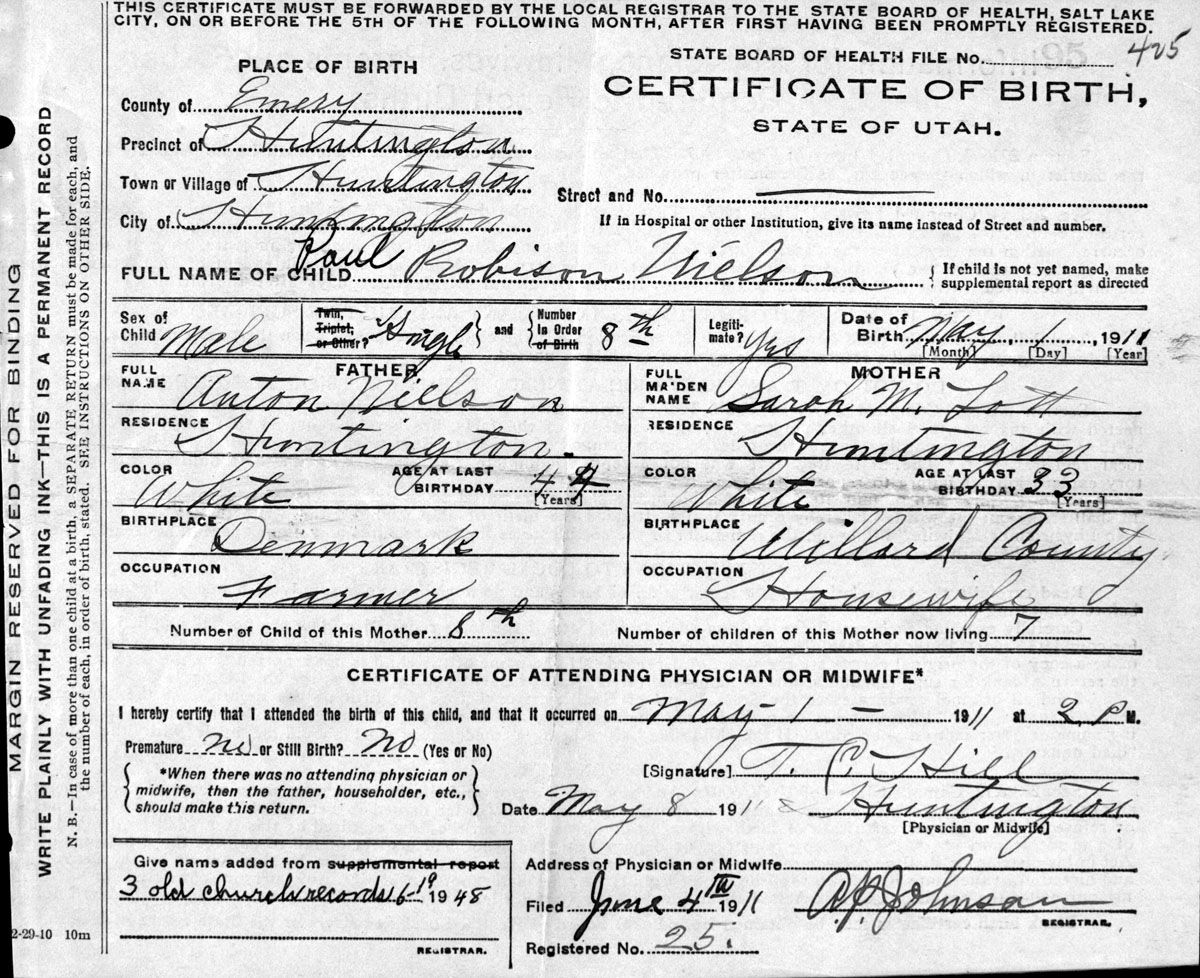 THIS CERTIFICATE MUST BE FORWARDED BY THE LOCAL REGISTRAR TO THE STATE BOARD OF HEALTH, SALT LAKE
CITY, ON OR BEFORE THE 5TH OF THE FOLLOWING MONTH, AFTER FIRST HAVING BEEN PROMPTLY REGISTERED.
MARGIN RESERVED FOR BINDING
WRITE PLAINLY WITH UNFADING INK—THIS IS A PERMANENT RECORD
N. B.—In case of more than one child at a birth, a SEPARATE RETURN must be made for each, and
the number of each, in order of birth, stated. SEE INSTRUCTIONS ON OTHER SIDE.
STATE BOARD OF HEALTH FILE No. 425
CERTIFICATE OF BIRTH,
STATE OF UTAH.
PLACE OF BIRTH
County of Emery
Precinct of Huntington
Town or Village of Huntington
City of Huntington
Street and No.
If in Hospital or other Institution, give its name instead of Street and number.
FULL NAME OF CHILD Paul Robison Nielson
{ If child is not yet named, make
supplemental report as directed
Sex of Child Male
Twin, Triplet, or Other? Single } and { Number in Order of Birth 8th
Legiti-mate? Yes
Date of Birth May 1 1911
[Month] [Day] [Year]
FATHER
FULL NAME Anton Nielson
RESIDENCE Huntington.
COLOR White AGE AT LAST BIRTHDAY 44 [Years]
BIRTHPLACE Denmark
OCCUPATION Farmer
MOTHER
FULL MAIDEN NAME Sarah M. Lott
RESIDENCE Huntington
COLOR White AGE AT LAST BIRTHDAY 33 [Years]
BIRTHPLACE Willard County
OCCUPATION Housewife
Number of Child of this Mother 8th Number of children of this Mother now living 7
CERTIFICATE OF ATTENDING PHYSICIAN OR MIDWIFE*
I hereby certify that I attended the birth of this child, and that it occurred on May 1 — 1911 at 2 P M.
Premature No or Still Birth? No (Yes or No)
{ *When there was no attending physician or
midwife, then the father, householder, etc.,
should make this return. }
[Signature] T. C. Hill
Date May 8 1911 Huntington
[Physician or Midwife]
Give name added from supplemental report
3 old church records 6-19 1948
REGISTRAR.
Address of Physician or Midwife
Filed June 4th 1911 Johnson
REGISTRAR.
Registered No. 25.
2-29-10 10m